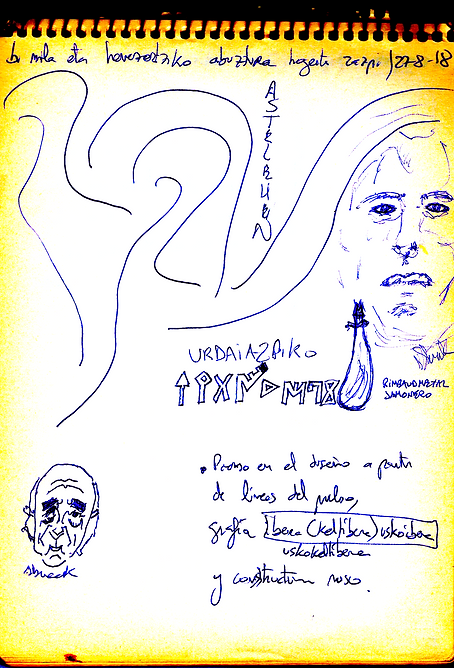 bi mila eta hemezortziko abuztura hogeita zazpi /27-8-18
ASTELEHEN
URDAIAZPIKO
RIMBAUD METAL
JAMONERO
. Pienso en el diseño a partir
de lineas del pulso,
grafía Ibera (keltibera) uskoibera
uskokeltibera
y ruso.